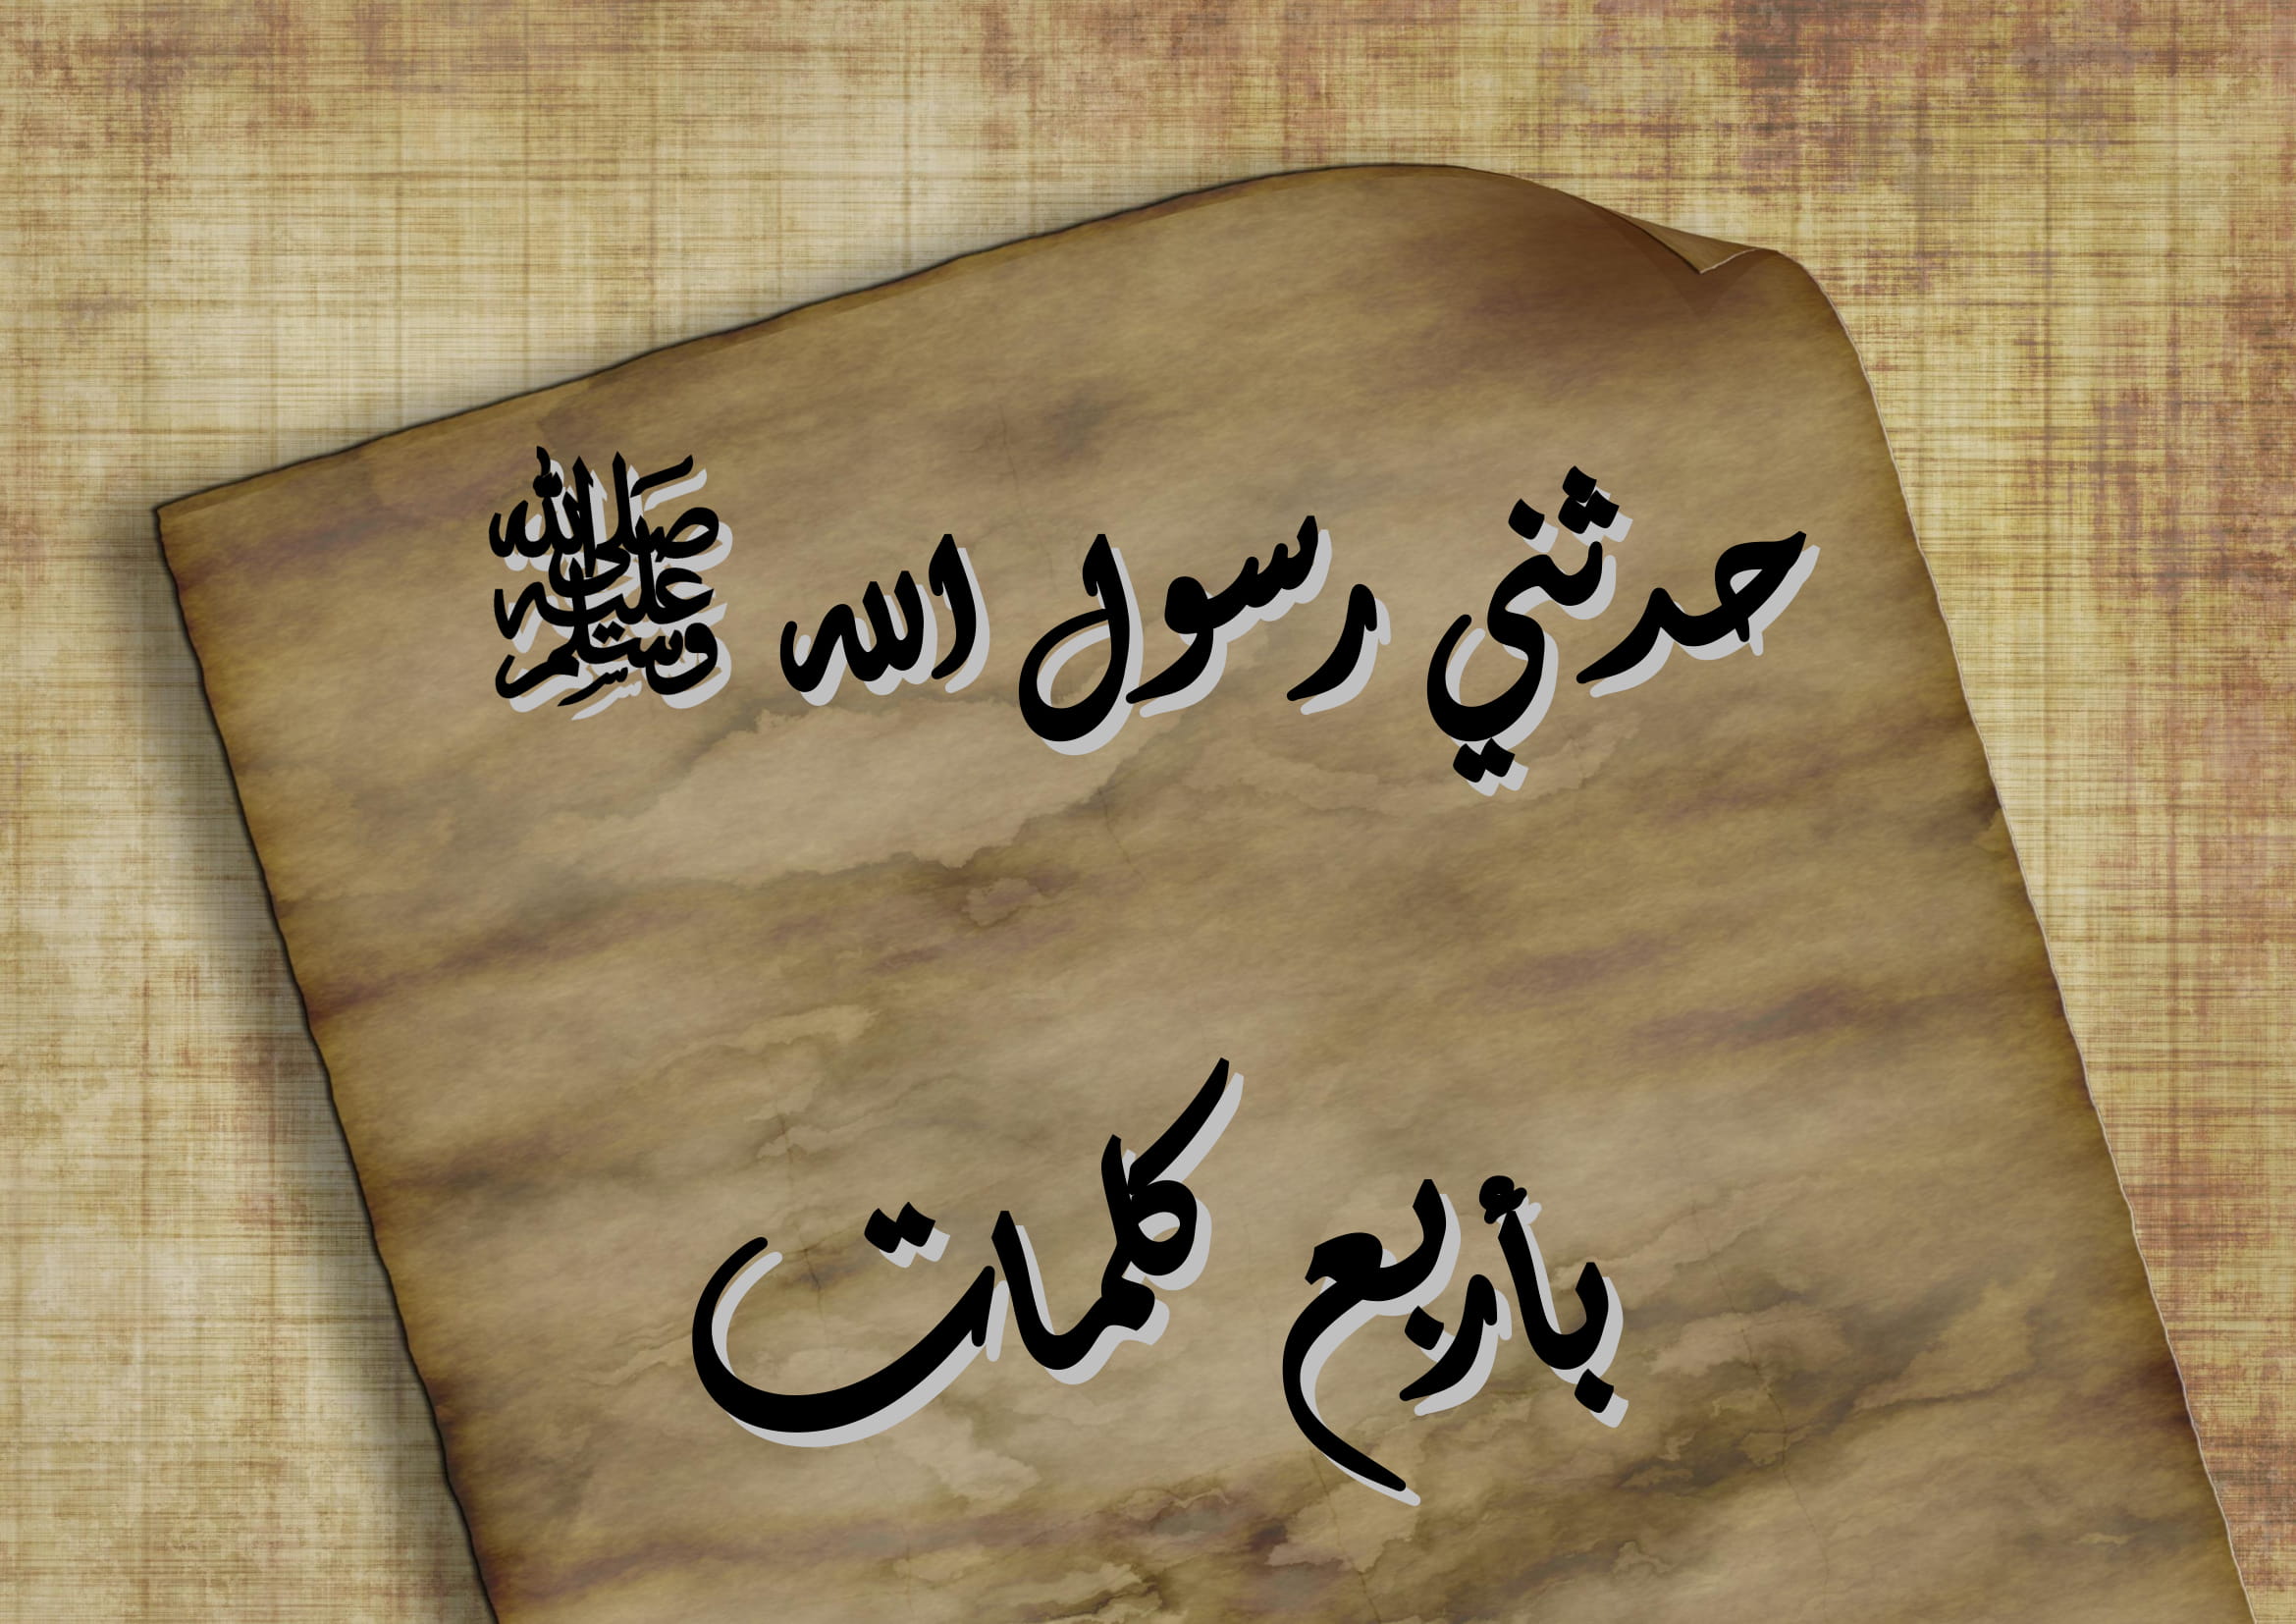 حدثني رسول الله ﷺ
بأربع كلمات